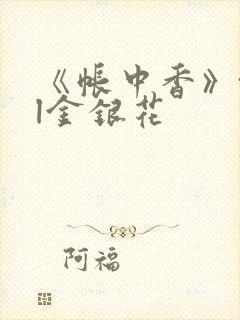 《帐中香》
|金银花
阿福